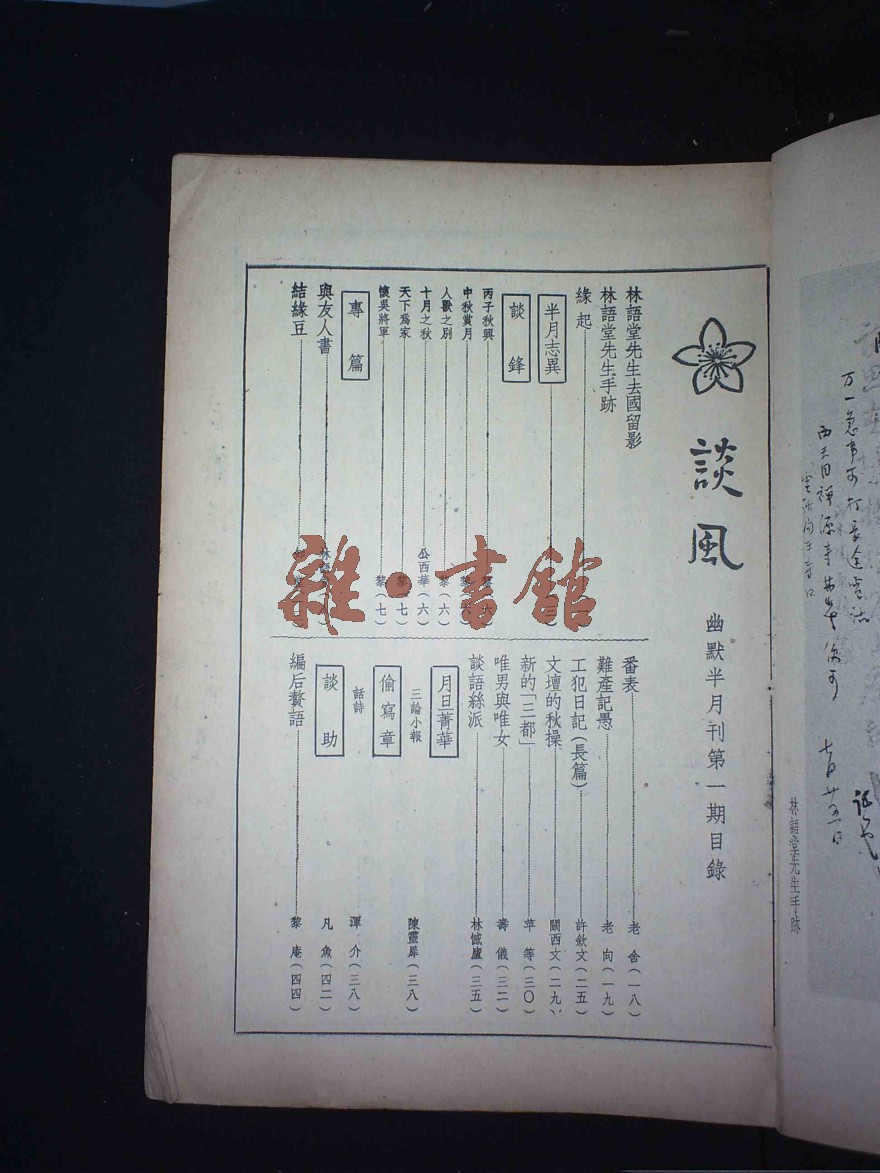 談風
幽默半月刊第一期目錄
林語堂先生去國留影
林語堂先生手跡
緣起
半月志異
談鋒
丙子秋興
中秋賞月
人獸之別 黎(六)
十月之秋 公西華(六)
天下為家 黎(七)
懷吳將軍 黎(七)
專篇
與友人書
結緣豆
番表 老舍(一八)
難產記愚 老向(一九)
工犯日記(長篇) 許欽文(二五)
文壇的秋操 關西文(二九)
新的「三都」 苹等(三〇)
唯男與唯女 壽儀(三二)
談語絲派 林憾廬(三五)
月旦菁華
三論小報 陳靈犀(三八)
偷寫章
話詩 渾介(三八)
談助 凡魚(四二)
編后贅語 黎庵(四四)
雜·書館
万一急事可打長途電話
西天目禪源寺
林語堂先生手跡